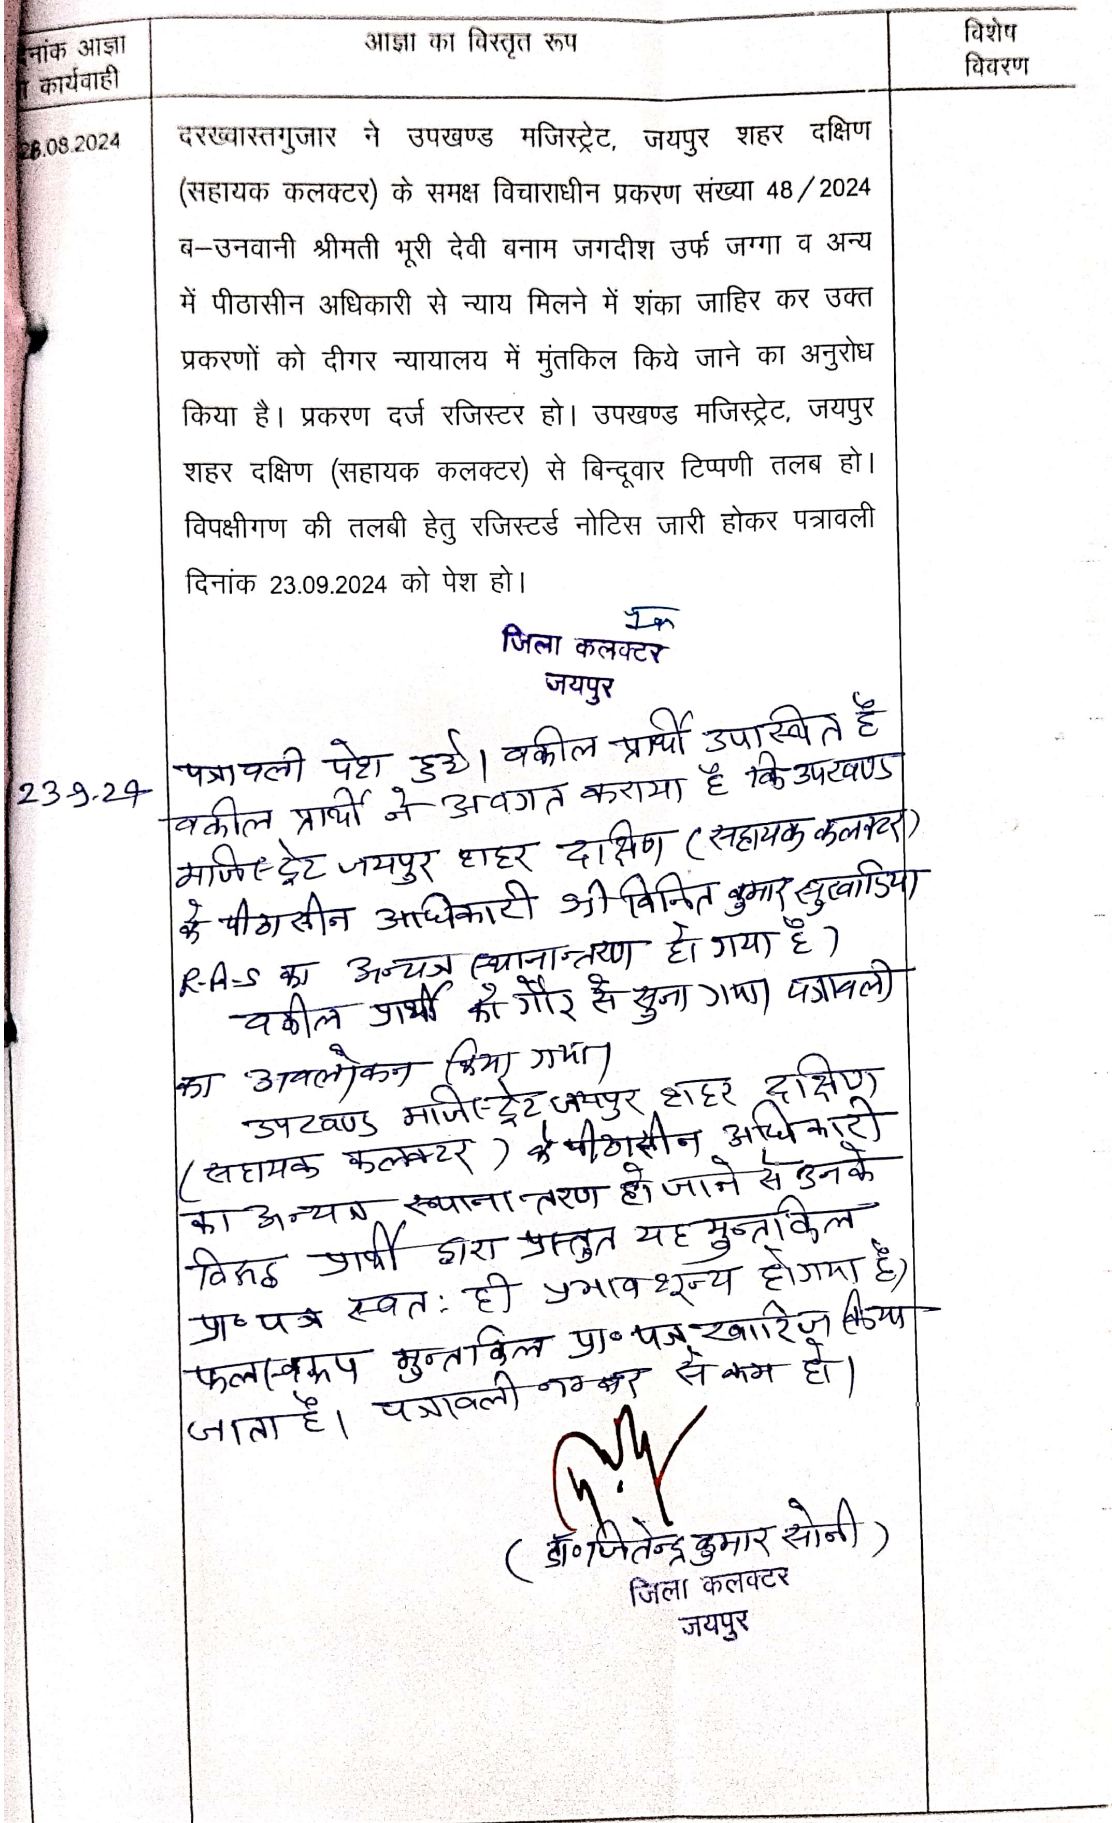 दिनांक आज्ञा
कार्यवाही
आज्ञा का विस्तृत रूप
विशेष
विवरण
28.08.2024
दरख्वास्तगुजार ने उपखण्ड मजिस्ट्रेट, जयपुर शहर दक्षिण
(सहायक कलक्टर) के समक्ष विचाराधीन प्रकरण संख्या 48/2024
ब–उनवानी श्रीमती भूरी देवी बनाम जगदीश उर्फ जग्गा व अन्य
में पीठासीन अधिकारी से न्याय मिलने में शंका जाहिर कर उक्त
प्रकरणों को दीगर न्यायालय में मुंतकिल किये जाने का अनुरोध
किया है। प्रकरण दर्ज रजिस्टर हो। उपखण्ड मजिस्ट्रेट, जयपुर
शहर दक्षिण (सहायक कलक्टर) से बिन्दूवार टिप्पणी तलब हो।
विपक्षीगण की तलबी हेतु रजिस्टर्ड नोटिस जारी होकर पत्रावली
दिनांक 23.09.2024 को पेश हो।
जिला कलक्टर
जयपुर
23-9-24
पत्रावली पेश हुई। वकील प्रार्थी उपस्थित है
वकील प्रार्थी ने अवगत कराया है कि उपखण्ड
मजिस्ट्रेट जयपुर शहर दक्षिण (सहायक कलक्टर)
के पीठासीन अधिकारी श्री विनित कुमार सुखाडिया
R-A-S का अन्यत्र स्थानान्तरण हो गया है।
वकील प्रार्थी को गौर से सुना गया। पत्रावली
का अवलोकन किया गया।
उपखण्ड मजिस्ट्रेट जयपुर शहर दक्षिण
(सहायक कलक्टर) के पीठासीन अधिकारी
का अन्यत्र स्थानान्तरण हो जाने से उनके
विरूद्ध प्रार्थी द्वारा प्रस्तुत यह मुन्तकिल
प्रा॰ पत्र स्वत: ही प्रभावशून्य हो गया है।
फलस्वरूप मुन्तकिल प्रा॰ पत्र खारिज किया
जाता है। पत्रावली नम्बर से कम हो।
(डॉ॰ जितेन्द्र कुमार सोनी)
जिला कलक्टर
जयपुर